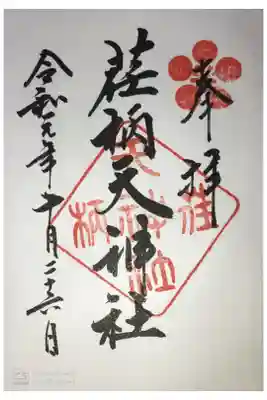 奉拝
荏柄天神社
令和元年十月二十六日